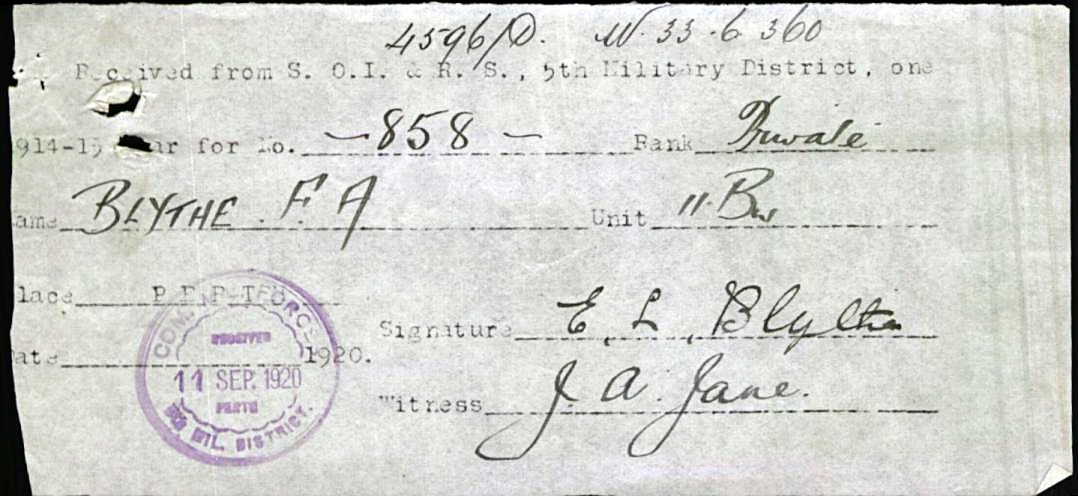 4596/D. W. 33.6.360
Received from S. O.I. & R. S., 5th Military District, one
914-15 ar for No. — 858 — Rank Private
ame BLYTHE . F A Unit 11. Bn
lace PERTH
Signature E. L. Blythe
ate 1920.
Witness J. A. Jane.
COM. FORCES
RECEIVED
11 SEP. 1920
PERTH
MIL. DISTRICT.